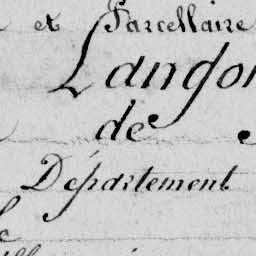 et Parcellaire
Langon
de
Département